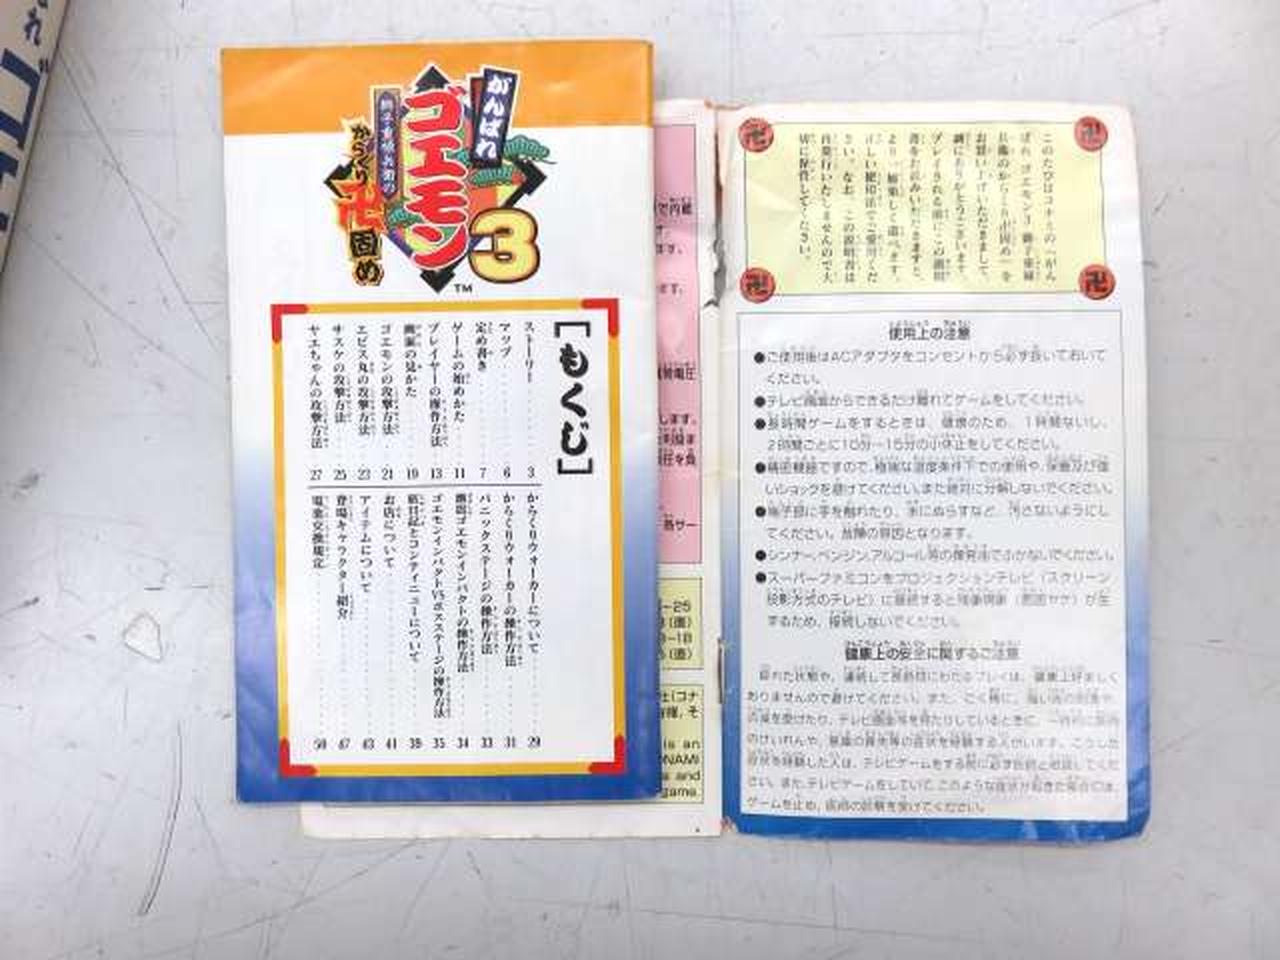 がんばれ
ゴエモン
3
獅子重禄兵衛の
からくり
卍
固め
TM
[もくじ]
ストーリー 3
マップ 6
定め書き 7
ゲームの始めかた 11
プレイヤーの操作方法 13
画面の見かた 19
ゴエモンの攻撃方法 21
エビス丸の攻撃方法 23
サスケの攻撃方法 25
ヤエちゃんの攻撃方法 27
からくりウォーカーについて 29
からくりウォーカーの操作方法 31
パニックステージの操作方法 33
激闘ゴエモンインパクトの操作方法 34
ゴエモンインパクトVSボスステージの操作方法 35
旅日記とコンティニューについて 39
お店について 41
アイテムについて 43
登場キャラクター紹介 47
電池交換規定 50
このたびはコナミの「がん
ばれゴエモン3 獅子重禄
兵衛のからくり卍固め」を
お買い上げいただきまして、
誠にありがとうございます。
プレイされる前にこの説明
書をお読みいただきますと、
より一層楽しく遊べます。
正しい使用法でご愛用くだ
さい。なお、この説明書は
再発行いたしませんので大
切に保管してください。
使用上の注意
●ご使用後はACアダプタをコンセントから必ず抜いておいて
ください。
●テレビ画面からできるだけ離れてゲームをしてください。
●長時間ゲームをするときは、健康のため、1時間ないし、
2時間ごとに10分〜15分の小休止をしてください。
●精密機器ですので、極端な温度条件下での使用や、保管及び強
いショックを避けてください。また絶対に分解しないでください。
●端子部に手を触れたり、水にぬらすなど、汚さないようにし
てください。故障の原因となります。
●シンナー、ベンジン、アルコール等の揮発油でふかないでください。
●スーパーファミコンをプロジェクションテレビ(スクリーン
投影方式のテレビ)に接続すると残像現象(画面ヤケ)が生
するため、接続しないでください。
健康上の安全に関するご注意
疲れた状態や、連続して長時間にわたるプレイは、健康上好ましく
ありませんので避けてください。また、ごく稀に、強い光の刺激や、
の点滅を受けたり、テレビ画面等を見たりしているときに、一時的に筋肉
のけいれんや、意識の喪失等の症状を経験する人がいます。こうした
症状を経験した人は、テレビゲームをする前に必ず医師と相談してくだ
さい。また、テレビゲームをしていて、このような症状が起きた場合には、
ゲームを止め、医師の診察を受けてください。
is an
ONAMI
s and
game.